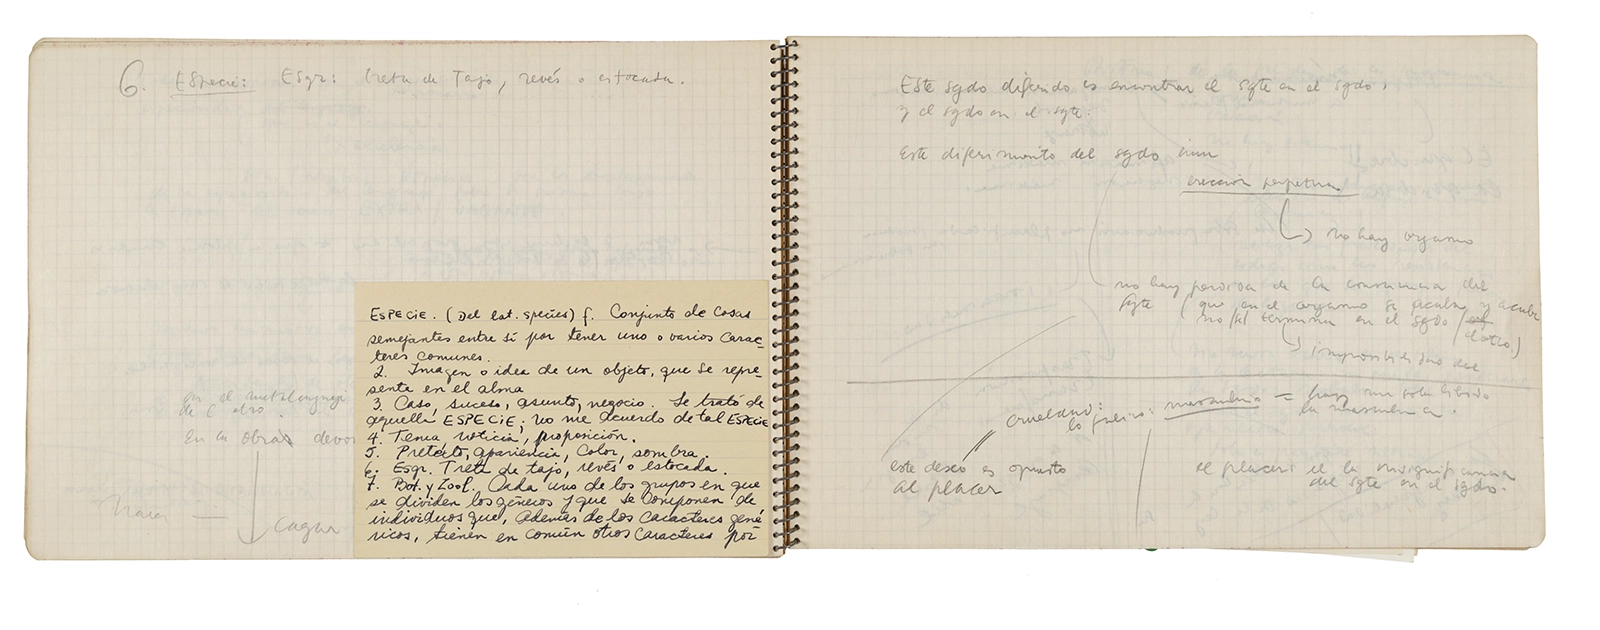 6. Especie: Esgr: treta de Tajo, revés o estocada.
en el metalenguaje
de l otro.
En la obra devor
cagar
ESPECIE. (Del lat. species) f. Conjunto de cosas
semejantes entre sí por tener uno o varios carac-
teres comunes.
2. Imagen o idea de un objeto, que se repre-
senta en el alma
3. Caso, suceso, asunto, negocio. Se trató de
aquella ESPECIE; no me acuerdo de tal ESPECIE
4. Tema, noticia, proposición.
5. Pretexto, apariencia, color, sombra.
6. Esgr. Treta de tajo, revés o estocada.
7. Bot. y Zool. Cada uno de los grupos en que
se dividen los géneros y que se componen de
individuos que, además de los caracteres gené-
ricos, tienen en común otros caracteres por
Este sgdo diferido es encontrar el sgte en el sgdo,
y el sgdo en el sgte.
Este diferimiento del sgdo
erección perpetua
no hay orgasmo
no hay pérdida de la consistencia del
sgte (que en el orgasmo se acaba y acaba
no termina en el sgdo / el otro)
crueldad: masculino =
lo
la masculina.
este deseo es opuesto
al placer
el placer: el la insignificancia
del sgte en el sgdo.